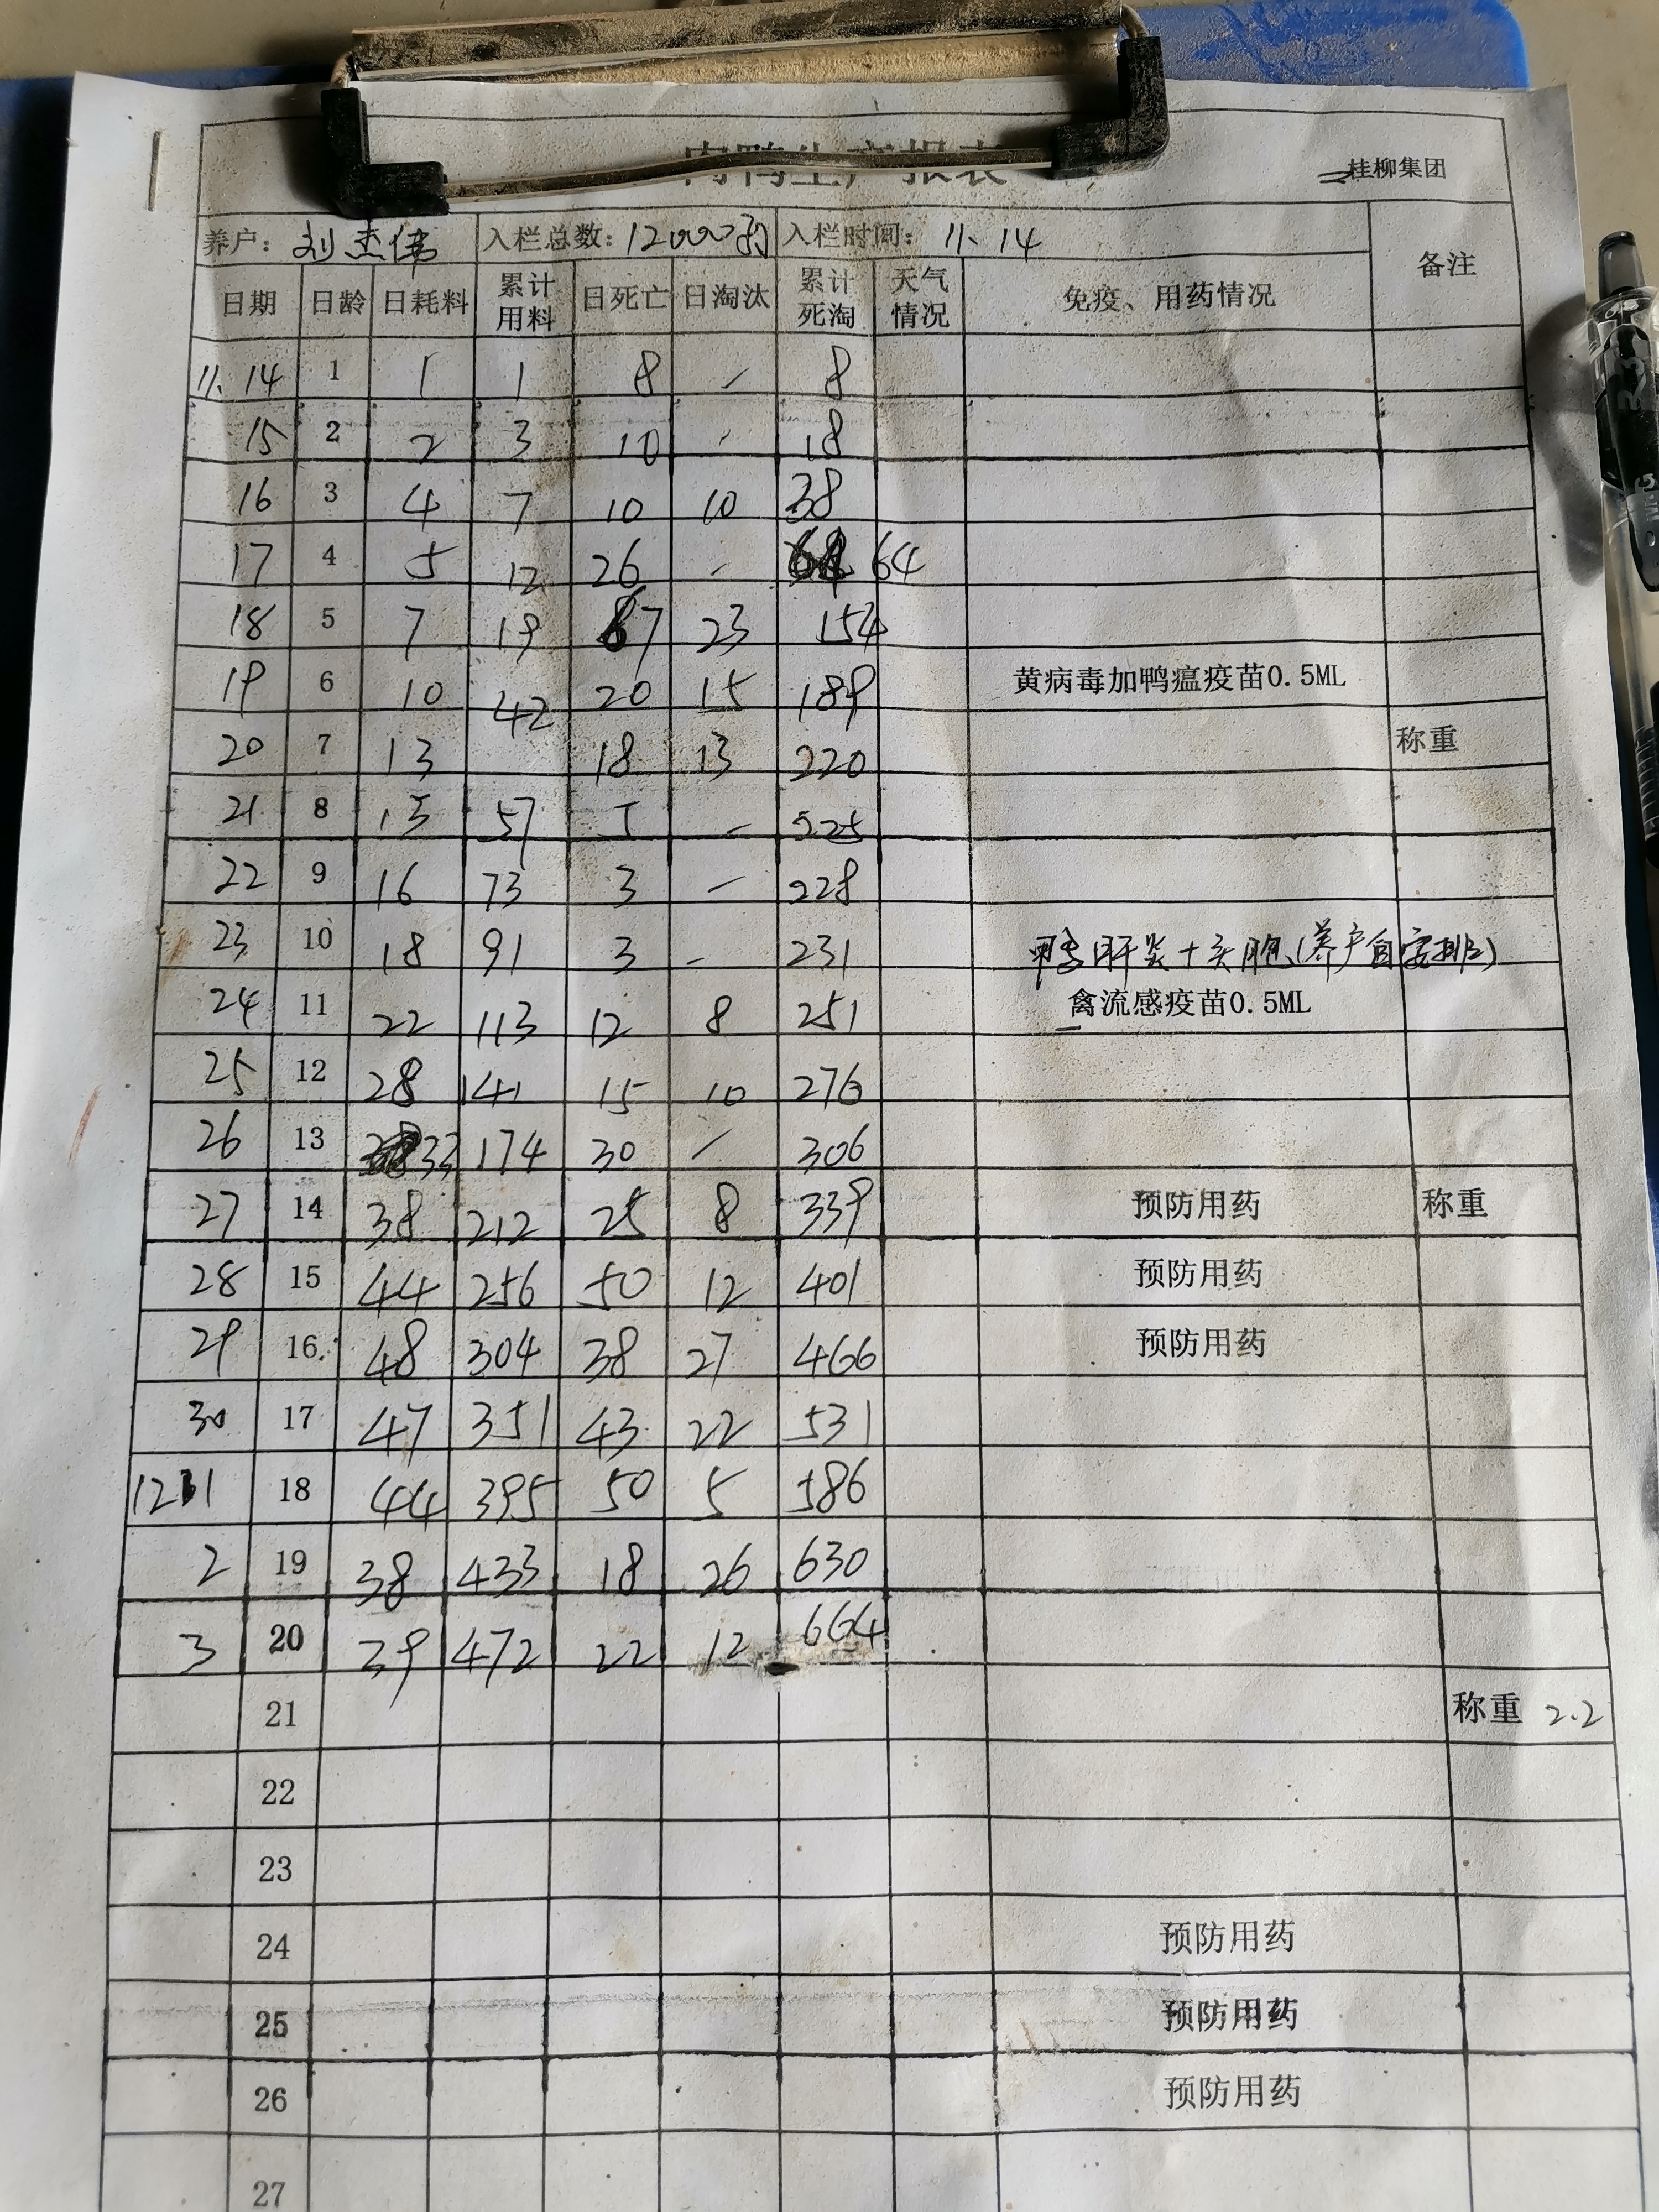 肉鸭生产报表
桂柳集团
养户: 刘杰伟 入栏总数: 12000羽 入栏时间: 11.14 备注
日期 日龄 日耗料 累计用料 日死亡 日淘汰 累计死淘 天气情况 免疫、用药情况
11.14 1 1 1 8 - 8
15 2 2 3 10 - 18
16 3 4 7 10 10 38
17 4 5 12 26 - 64
18 5 7 19 67 23 154
19 6 10 42 20 15 189 黄病毒加鸭瘟疫苗0.5ML
20 7 13 18 13 220 称重
21 8 15 57 5 - 225
22 9 16 73 3 - 228
23 10 18 91 3 - 231 鸭肝炎+头孢(养户自安排)
24 11 22 113 12 8 251 禽流感疫苗0.5ML
25 12 28 141 15 10 276
26 13 33 174 30 - 306
27 14 38 212 25 8 339 预防用药 称重
28 15 44 256 50 12 401 预防用药
29 16 48 304 38 27 466 预防用药
30 17 47 351 43 22 531
12.1 18 44 395 50 5 586
2 19 38 433 18 26 630
3 20 39 472 22 12 664
21 称重 2.2
22
23
24 预防用药
25 预防用药
26 预防用药
27